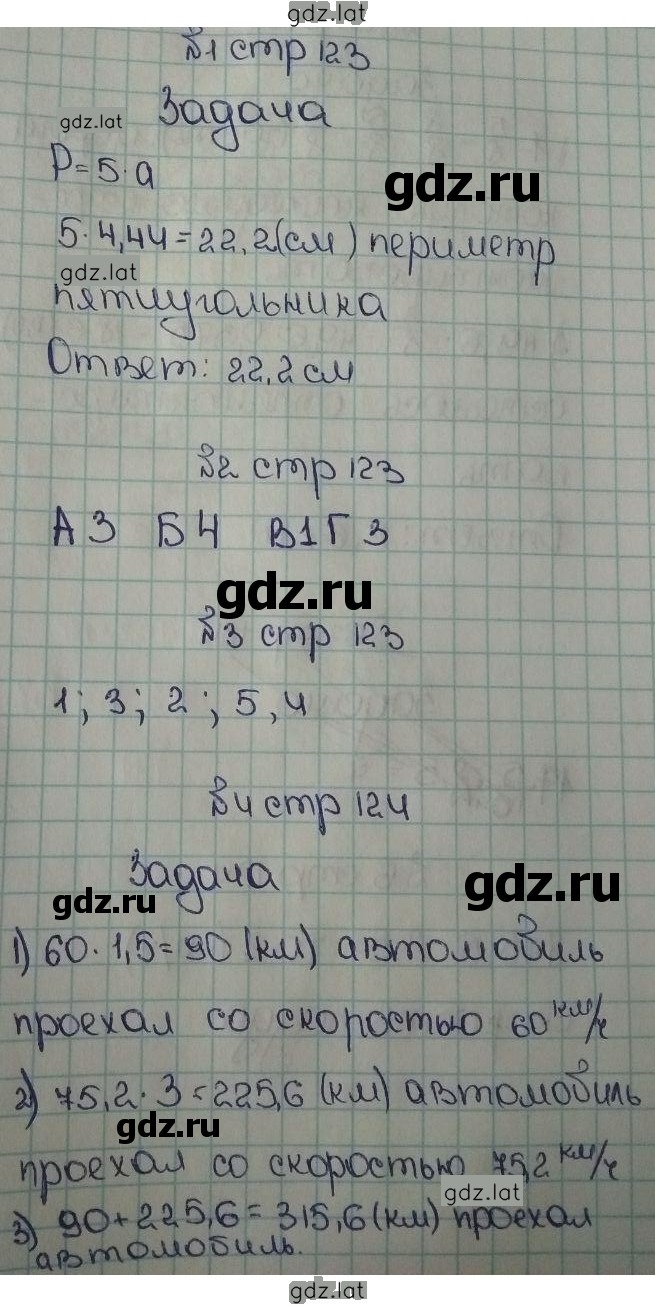 gdz.lat
№1 стр 123
Задача
gdz.lat
P=5·a
gdz.ru
5·4,44=22,2(см) периметр
gdz.lat
пятиугольника
Ответ: 22,2см
№2 стр 123
А3 Б4 В1 Г3
gdz.ru
№3 стр 123
1; 3; 2; 5, 4
№4 стр 124
Задача
gdz.ru
gdz.ru
1) 60·1,5=90 (км) автомобиль
проехал со скоростью 60 км/ч
2) 75,2·3=225,6 (км) автомобиль
gdz.ru
проехал со скоростью 75,2 км/ч
gdz.lat
3) 90+225,6=315,6(км) проехал
автомобиль.
gdz.lat